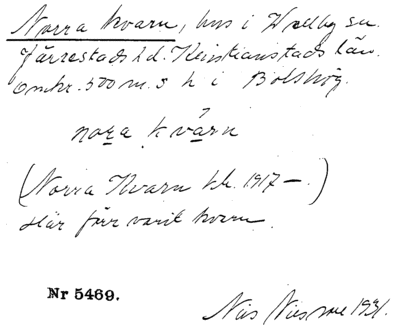 Norra kvarn, hus i Vallby sn.
Järrestads hd. Kristianstads län.
Omkr. 500 m. s h i Bolshög.
nora kvarn
(Norra Kvarn kk. 1917 – .)
Här förr varit kvarn.
Nr 5469.
Nils 1931.